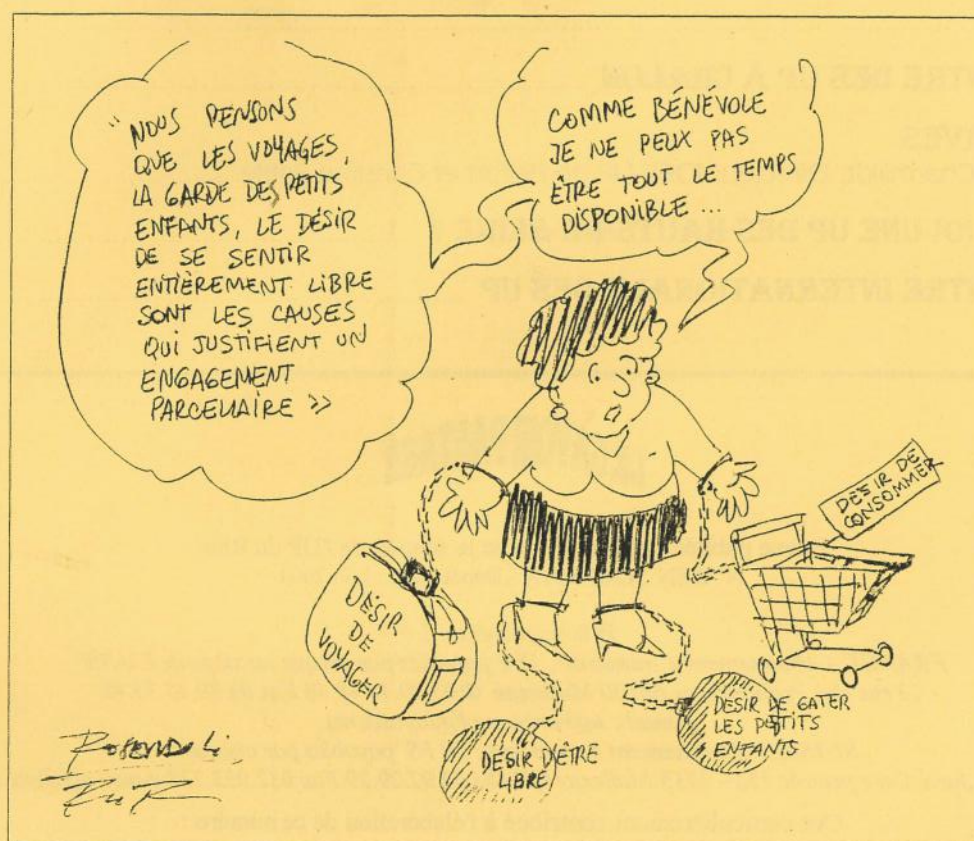 " NOUS PENSONS
QUE LES VOYAGES,
LA GARDE DES PETITS
ENFANTS, LE DÉSIR
DE SE SENTIR
ENTIÈREMENT LIBRE
SONT LES CAUSES
QUI JUSTIFIENT UN
ENGAGEMENT
PARCELLAIRE »
COMME BÉNÉVOLE
JE NE PEUX PAS
ÊTRE TOUT LE TEMPS
DISPONIBLE ...
DÉSIR DE
CONSOMMER
DÉSIR
DE
VOYAGER
DÉSIR D'ÊTRE
LIBRE
DÉSIR DE GATER
LES PETITS
ENFANTS